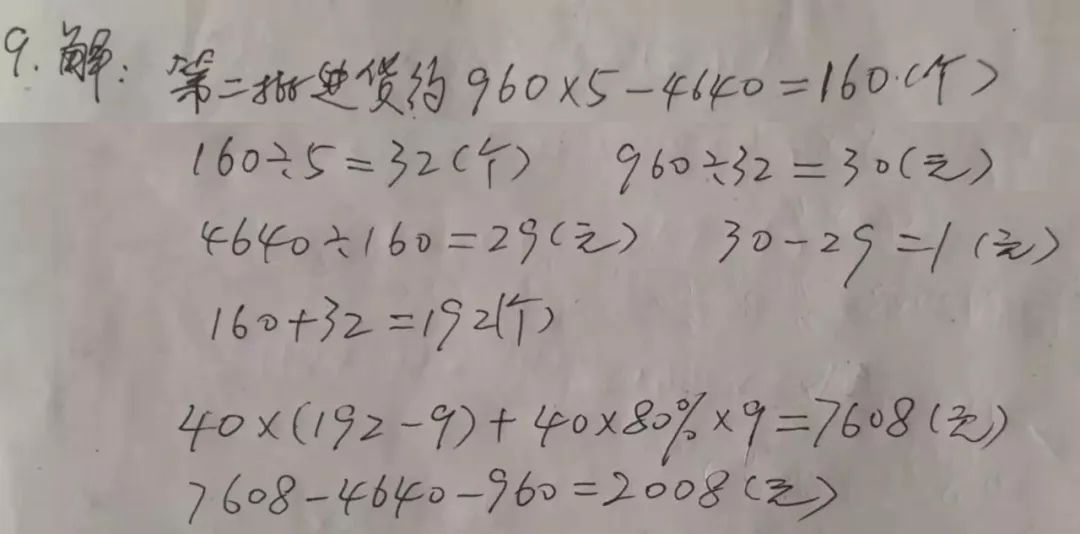 9. 解: 第二批进货约 960×5-4640=160(个)
160÷5=32(个) 960÷32=30(元)
4640÷160=29(元) 30-29=1(元)
160+32=192(个)
40×(192-9)+40×80%×9=7608(元)
7608-4640-960=2008(元)